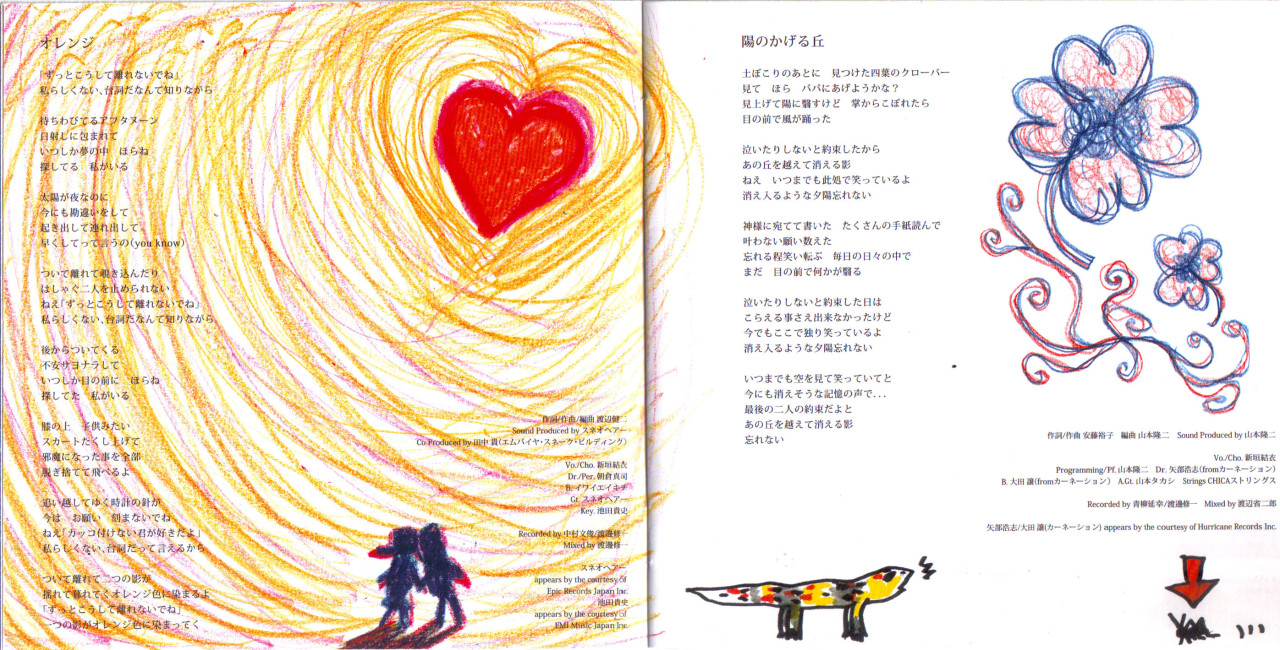 オレンジ
「ずっとこうして離れないでね」
私らしくない、台詞だなんて知りながら
待ちわびてるアフタヌーン
日射しに包まれて
いつしか夢の中　ほらね
探してる　私がいる
太陽が夜なのに
今にも勘違いをして
起き出して連れ出して
早くしてって言うの(you know)
ついて離れて覗き込んだり
はしゃぐ二人を止められない
ねえ「ずっとこうして離れないでね」
私らしくない、台詞だなんて知りながら
後からついてくる
不安サヨナラして
いつしか目の前に　ほらね
探してた　私がいる
膝の上　子供みたい
スカートたくし上げて
邪魔になった事を全部
脱ぎ捨てて飛べるよ
追い越してゆく時計の針が
今は　お願い　刻まないでね
ねえ「カッコ付けない君が好きだよ」
私らしくない、台詞だって言えるから
ついて離れて二つの影が
揺れて暮れてくオレンジ色に染まるよ
「ずっとこうして離れないでね」
一つの影がオレンジ色に染まってく
作詞/作曲/編曲 渡辺健二
Sound Produced by スネオヘアー
Co-Produced by 田中 貴(エムパイヤ・スネーク・ビルディング)
Vo./Cho. 新垣結衣
Dr./Per. 朝倉真司
B. イワイエイキチ
Gt. スネオヘアー
Key. 池田貴史
Recorded by 中村文俊/渡邊修一
Mixed by 渡邊修一
スネオヘアー
appears by the courtesy of
Epic Records Japan Inc.
池田貴史
appears by the courtesy of
EMI Music Japan Inc.
陽のかげる丘
土ぼこりのあとに　見つけた四葉のクローバー
見て　ほら　パパにあげようかな？
見上げて陽に翳すけど　掌からこぼれたら
目の前で風が踊った
泣いたりしないと約束したから
あの丘を越えて消える影
ねえ　いつまでも此処で笑っているよ
消え入るような夕陽忘れない
神様に宛てて書いた　たくさんの手紙読んで
叶わない願い数えた
忘れる程笑い転ぶ　毎日の日々の中で
まだ　目の前で何かが翳る
泣いたりしないと約束した日は
こらえる事さえ出来なかったけど
今でもここで独り笑っているよ
消え入るような夕陽忘れない
いつまでも空を見て笑っていてと
今にも消えそうな記憶の声で...
最後の二人の約束だよと
あの丘を越えて消える影
忘れない
作詞/作曲 安藤裕子　編曲 山本隆二　Sound Produced by 山本隆二
Vo./Cho. 新垣結衣
Programming/Pf. 山本隆二　Dr. 矢部浩志(fromカーネーション)
B. 大田 譲(fromカーネーション)　A.Gt. 山本タカシ　Strings CHICAストリングス
Recorded by 青柳延幸/渡邊修一　Mixed by 渡辺省二郎
矢部浩志/大田 譲(カーネーション) appears by the courtesy of Hurricane Records Inc.